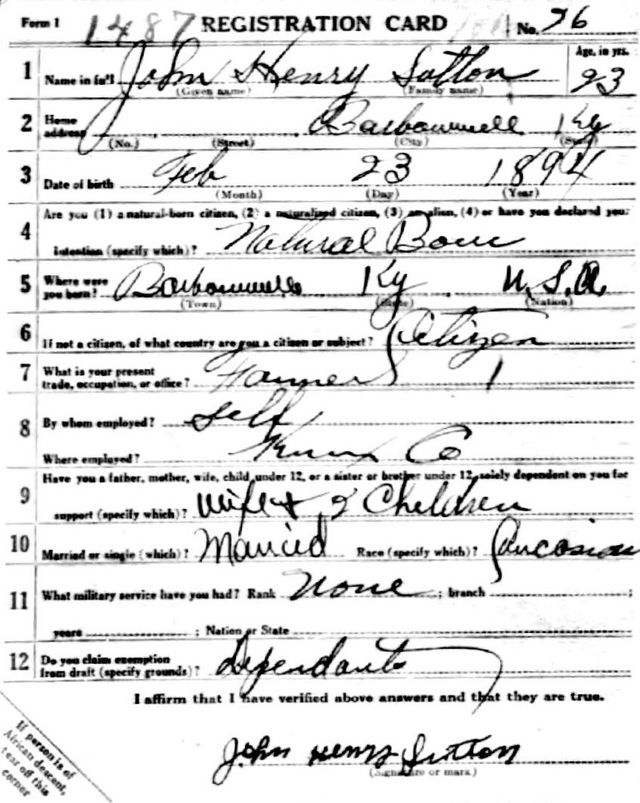 Form 1 1487 REGISTRATION CARD No. 26
1 Name in full John Henry Sutton Age, in yrs. 23
(Given name) (Family name)
2 Home address Barbourville Ky
(No.) (Street) (City) (State)
3 Date of birth Feb 23 1894
(Month) (Day) (Year)
4 Are you (1) a natural-born citizen, (2) a naturalized citizen, (3) an alien, (4) or have you declared your
intention (specify which)? Natural Born
5 Where were you born? Barbourville Ky U.S.A.
(Town) (State) (Nation)
6 If not a citizen, of what country are you a citizen or subject? Citizen
7 What is your present trade, occupation, or office? Farmer
8 By whom employed? Self
Where employed? Knox Co
9 Have you a father, mother, wife, child under 12, or a sister or brother under 12, solely dependent on you for
support (specify which)? Wife & 2 Children
10 Married or single (which)? Married Race (specify which)? Caucasian
11 What military service have you had? Rank None ; branch ;
years ; Nation or State
12 Do you claim exemption from draft (specify grounds)? Dependants
I affirm that I have verified above answers and that they are true.
John Henry Sutton
(Signature or mark)
If person is of
African descent,
tear off this
corner